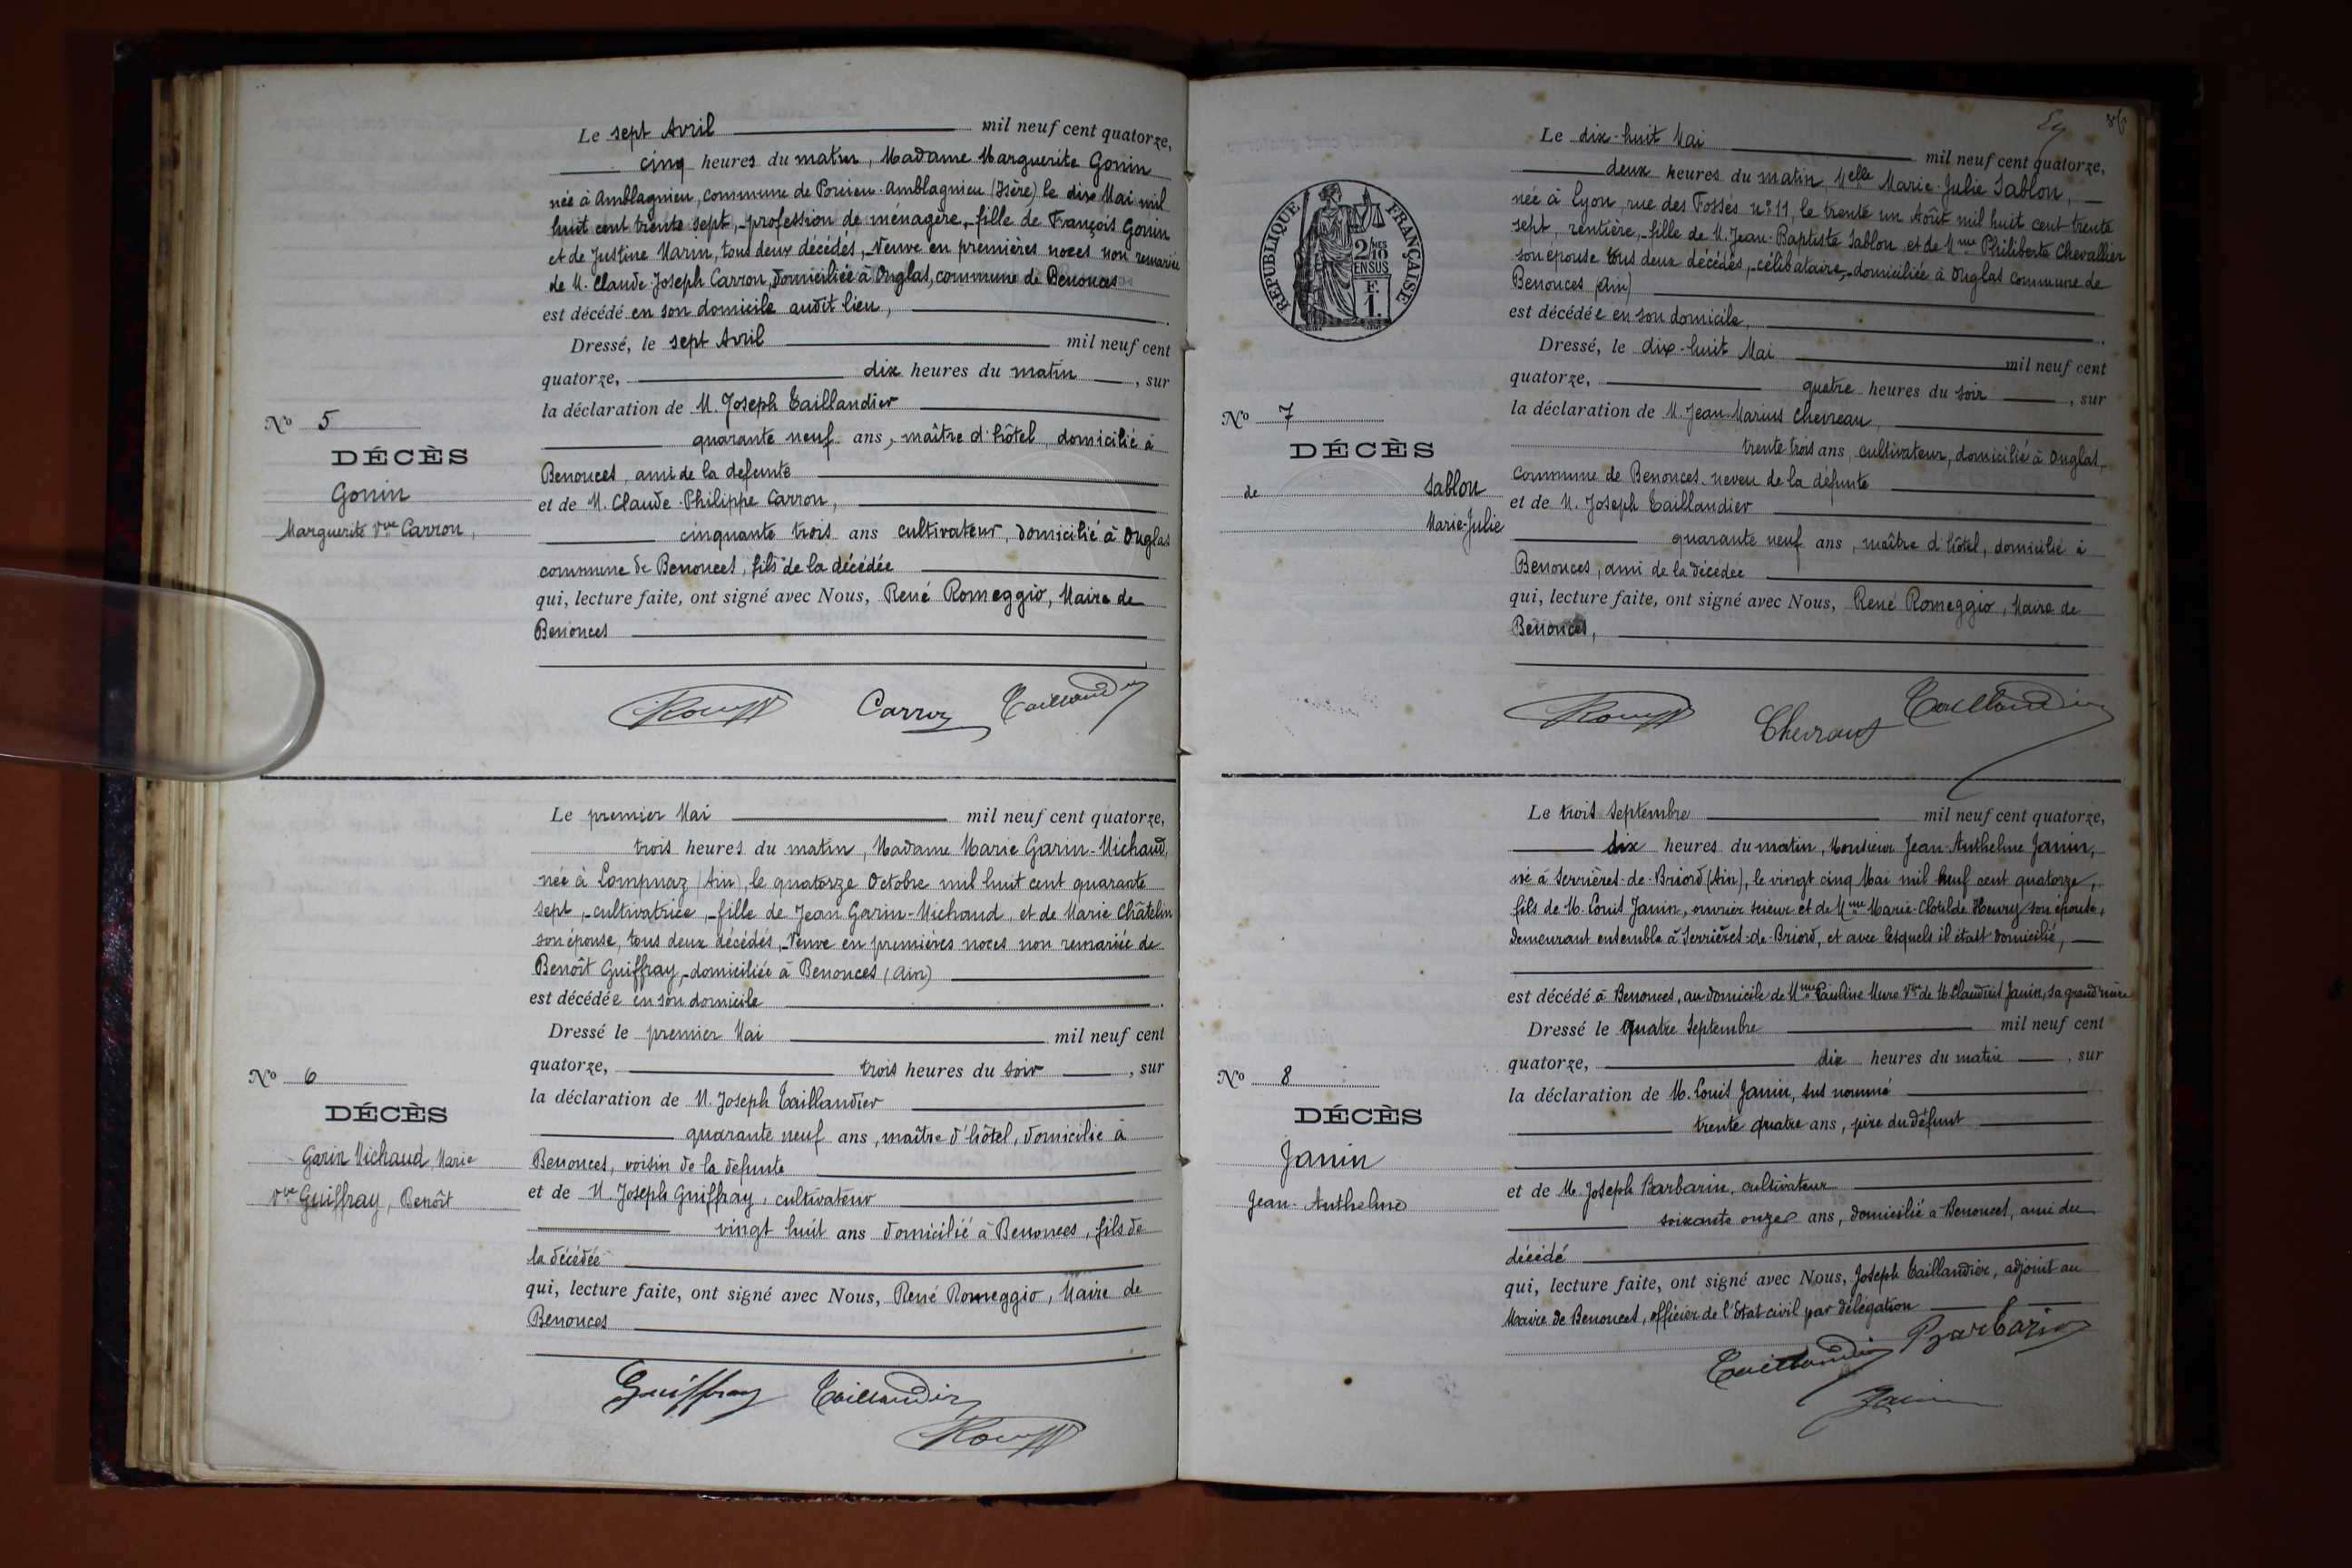 Le sept Avril mil neuf cent quatorze,
cinq heures du matin, Madame Marguerite Gonin
née à Amblagnieu, commune de Porcieu-Amblagnieu (Isère) le dix Mai mil
huit cent trente sept, profession de ménagère, fille de François Gonin
et de Justine Marin, tous deux décédés, Veuve en premières noces non remariée
de M. Claude-Joseph Carron, domiciliée à Onglas, commune de Benonces
est décédé en son domicile audit lieu,
Dressé, le sept Avril mil neuf cent
quatorze, dix heures du matin, sur
la déclaration de M. Joseph Taillandier
quarante neuf ans, maître d'hôtel, domicilié à
Benonces, ami de la defunte
et de M. Claude-Philippe Carron,
cinquante trois ans cultivateur, domicilié à Onglas
commune de Benonces, fils de la décédée
qui, lecture faite, ont signé avec Nous, René Romeggio, Maire de
Benonces
No 5
DÉCÈS
Gonin
Marguerite Vve Carron,
Carron Taillandier
Le premier Mai mil neuf cent quatorze,
trois heures du matin, Madame Marie Garin-Michaud,
née à Lompnaz (Ain), le quatorze Octobre mil huit cent quarante
sept, cultivatrice, fille de Jean Garin-Michaud, et de Marie Châtelin
son épouse, tous deux décédés, Veuve en premières noces non remariée de
Benoît Guiffray, domiciliée à Benonces (Ain)
est décédée en son domicile
Dressé le premier Mai mil neuf cent
quatorze, trois heures du soir, sur
la déclaration de M. Joseph Taillandier
quarante neuf ans, maître d'hôtel, domicilié à
Benonces, voisin de la defunte
et de M. Joseph Guiffray, cultivateur
vingt huit ans domicilié à Benonces, fils de
la décédée
qui, lecture faite, ont signé avec Nous, René Romeggio, Maire de
Benonces
No 6
DÉCÈS
Garin Michaud Marie
Vve Guiffray, Benoît
Guiffray Taillandier
RÉPUBLIQUE FRANÇAISE
2/10 EN SUS
F. 1.
Le dix-huit Mai mil neuf cent quatorze,
deux heures du matin, Melle Marie-Julie Sablon,
née à Lyon, rue des Fossés no 11, le trente un Août mil huit cent trente
sept, rentière, fille de M. Jean-Baptiste Sablon et de Mme Philiberte Chevallier
son épouse tous deux décédés, célibataire, domiciliée à Onglas commune de
Benonces (Ain)
est décédée en son domicile,
Dressé, le dix-huit Mai mil neuf cent
quatorze, quatre heures du soir, sur
la déclaration de M. Jean-Marius Chevreau,
trente trois ans, cultivateur, domicilié à Onglas,
commune de Benonces neveu de la défunte
et de M. Joseph Taillandier
quarante neuf ans, maître d'hôtel, domicilié à
Benonces, ami de la décédée
qui, lecture faite, ont signé avec Nous, René Romeggio, Maire de
Benonces,
No 7
DÉCÈS
de Sablon
Marie-Julie
Taillandier
Le trois Septembre mil neuf cent quatorze,
dix heures du matin, Monsieur Jean-Anthelme Janin,
né à Serrières-de-Briord (Ain), le vingt cinq Mai mil neuf cent quatorze,
fils de M. Louis Janin, ouvrier scieur et de Mme Marie-Clotilde Henry son épouse,
demeurant ensemble à Serrières-de-Briord, et avec lesquels il était domicilié,
est décédé à Benonces, au domicile de Mme Pauline Mure Vve de M. Claudius Janin, sa grand'mère
Dressé le quatre Septembre mil neuf cent
quatorze, dix heures du matin, sur
la déclaration de M. Louis Janin, sus nommé
trente quatre ans, père du défunt
et de M. Joseph Barbarin, cultivateur
soixante onze ans, domicilié à Benonces, ami du
décédé
qui, lecture faite, ont signé avec Nous, Joseph Taillandier, adjoint au
Maire de Benonces, officier de l'Etat civil par délégation
No 8
DÉCÈS
Janin
Jean-Anthelme
Taillandier Barbarin
Janin